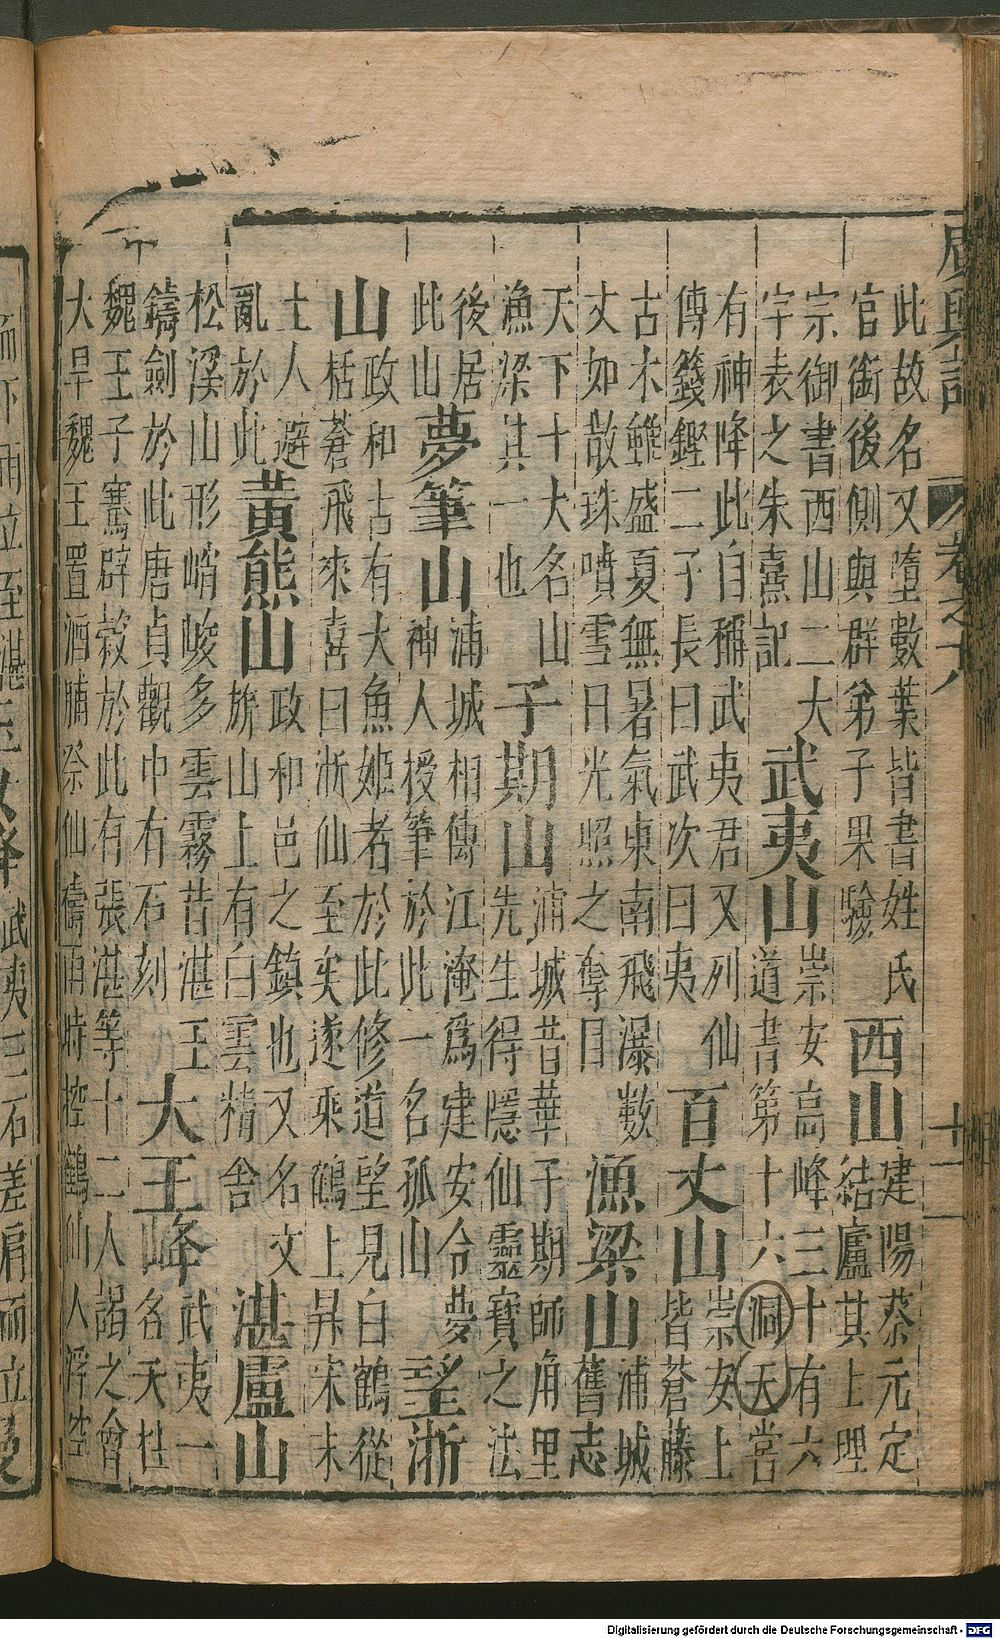 廣輿記 卷之十八 十一
此故名又墮數葉皆書姓氏
官銜後側與群弟子果驗
西山
建陽蔡元定
結廬其上理
宗御書西山二大
字表之朱熹記
武夷山
崇安高峰三十有六
道書第十六洞天嘗
有神降此自稱武夷君又列仙
傳籛鏗二子長曰武次曰夷
百丈山
崇安上
皆蒼藤
古木雖盛夏無暑氣東南飛瀑數
丈如散珠噴雪日光照之奪目
漁梁山
浦城
舊志
天下十大名山
漁梁其一也
子期山
浦城昔華子期師角里
先生得隱仙靈寶之法
後居
此山
夢筆山
浦城相傳江淹爲建安令夢
神人授筆於此一名孤山
望浙
山
政和古有大魚姬者於此修道望見白鶴從
栝蒼飛來喜曰浙仙至矣遂乘鶴上昇宋末
士人避
亂於此
黃熊山
政和邑之鎮也又名文
旂山上有白雲精舍
湛盧山
松溪山形峭峻多雲霧昔湛王
鑄劍於此唐貞觀中有石刻
大王峰
武夷一
名天柱
魏王子騫辟穀於此有張湛等十二人謁之會
大旱魏王置酒脯祭仙禱雨時控鶴仙人浮空
武夷三石差肩而立
Digitalisierung gefördert durch die Deutsche Forschungsgemeinschaft - DFG